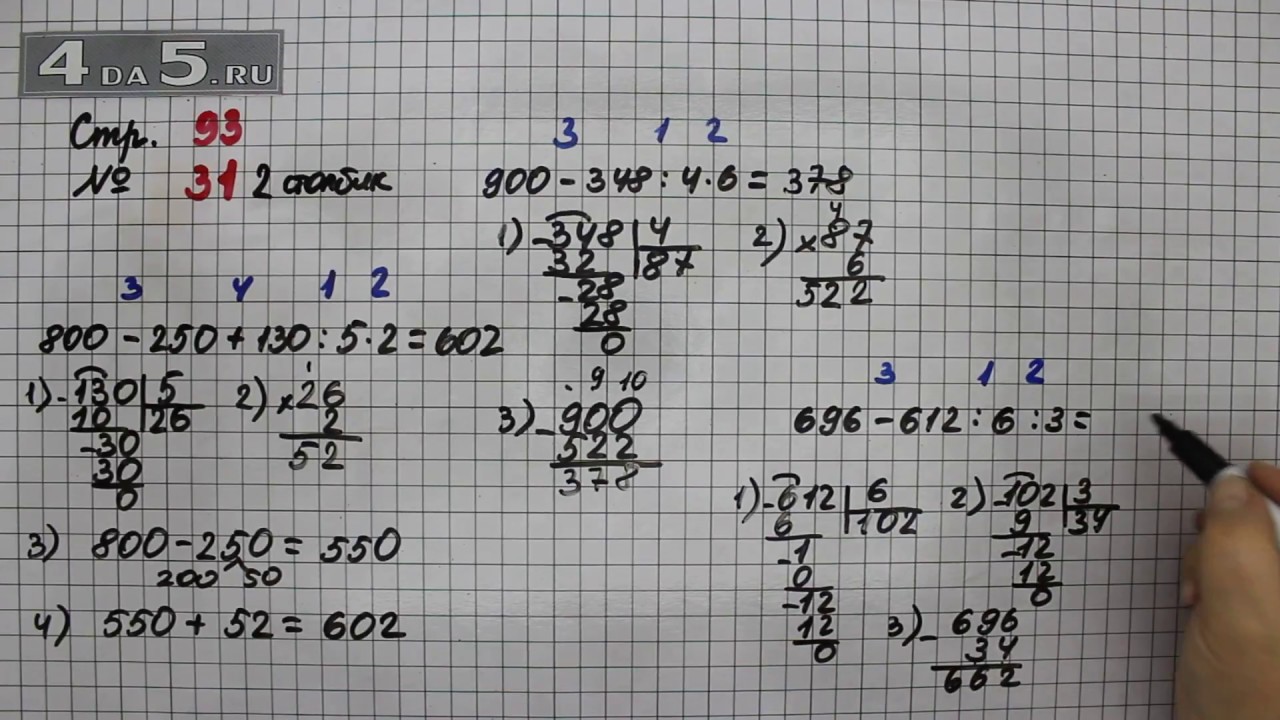 4DA5.RU
Стр. 93
№ 31 2 столбик
3 4 1 2
800 - 250 + 130 : 5 · 2 = 602
1) - 130 | 5
10 | 26
- 30
30
0
1
2) × 26
2
52
3) 800 - 250 = 550
200 50
4) 550 + 52 = 602
3 1 2
900 - 348 : 4 · 6 = 378
1) - 348 | 4
32 | 87
- 28
28
0
4
2) × 87
6
522
. 9 10
3) - 900
522
378
3 1 2
696 - 612 : 6 : 3 =
1) - 612 | 6
6 | 102
- 1
0
- 12
12
0
2) - 102 | 3
9 | 34
- 12
12
0
3) - 696
34
662